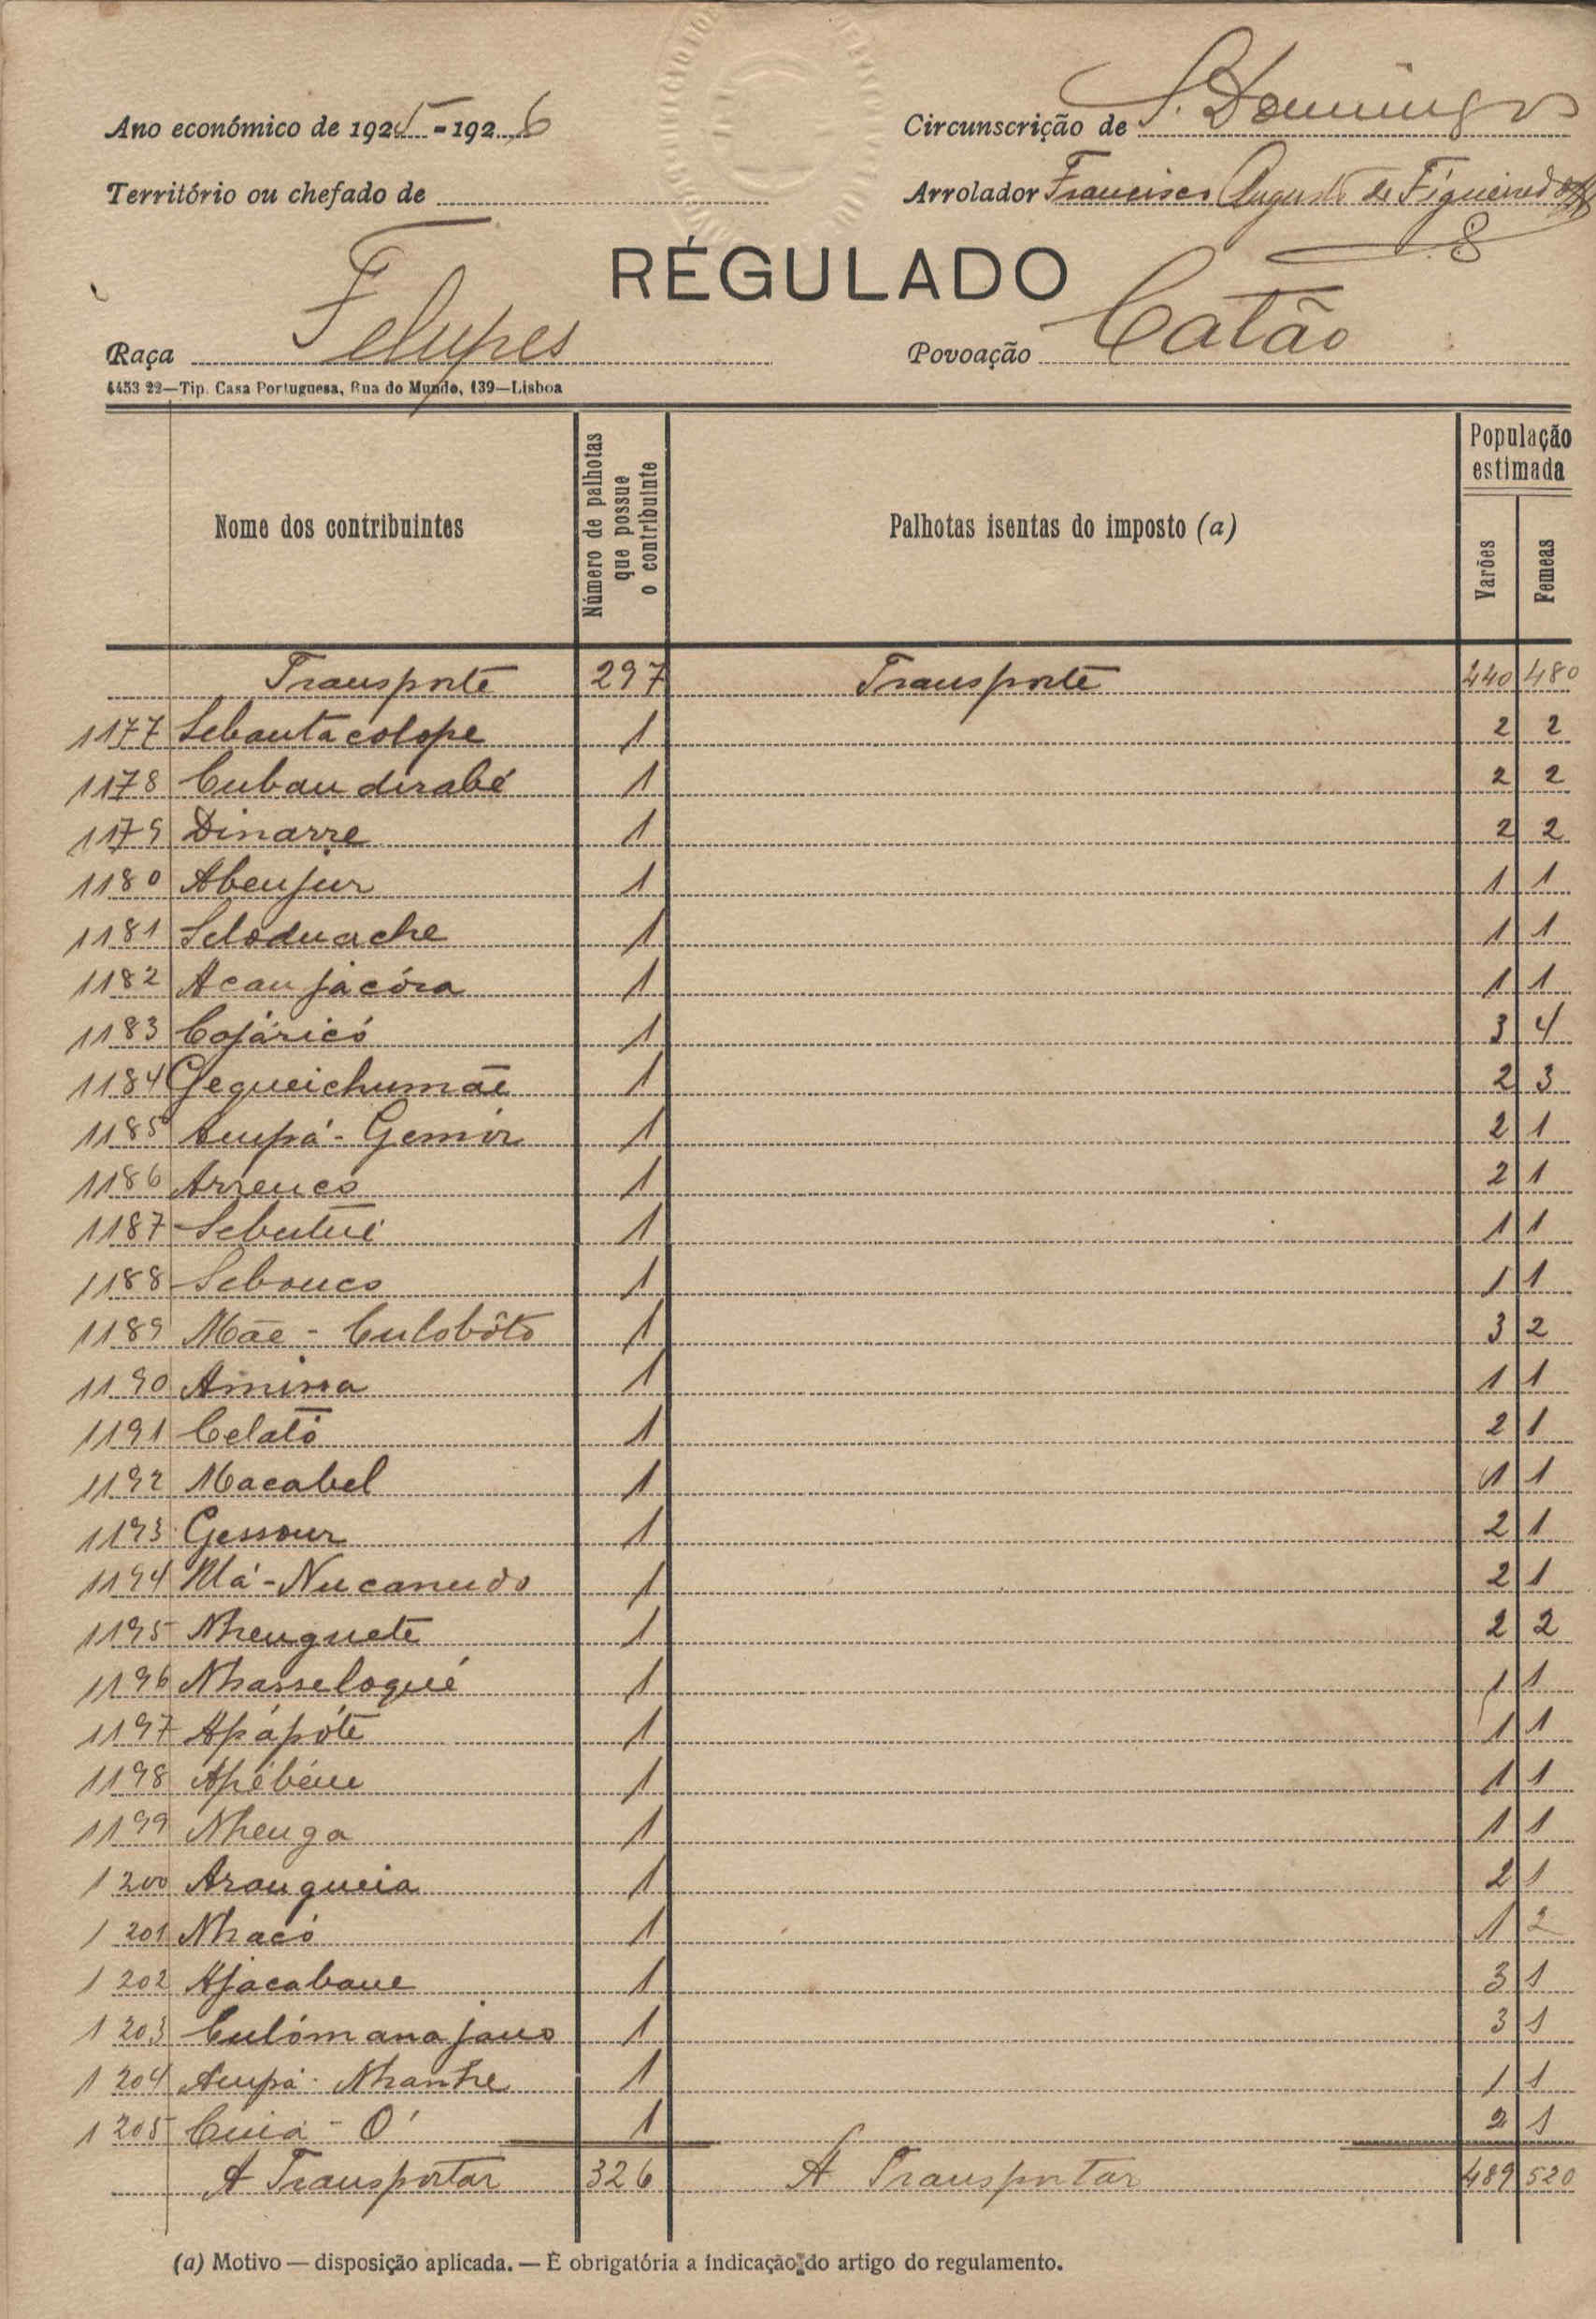 Ano económico de 1925-1926
Circunscrição de S. Domingos
Território ou chefado de
Arrolador Francisco Augusto de Figueiredo
8
RÉGULADO
Raça Felupes
Povoação Catão
4453 22—Tip. Casa Portuguesa, Rua do Mundo, 139—Lisboa
Nome dos contribuintes
Número de palhotas que possue o contribuinte
Palhotas isentas do imposto (a)
População estimada
Varões
Femeas
Transporte 297 Transporte 440 480
1177 Sebantacolope 1 2 2
1178 Cubau dirabé 1 2 2
1179 Dinarre 1 2 2
1180 Abeujur 1 1 1
1181 Seloduache 1 1 1
1182 Acau jacóra 1 1 1
1183 Cojáricó 1 3 4
1184 Gequeichumãe 1 2 3
1185 Aupá-Gemir 1 2 1
1186 Arrenco 1 2 1
1187 Sebutui 1 1 1
1188 Sebouco 1 1 1
1189 Mãe-Culobôto 1 3 2
1190 Aminra 1 1 1
1191 Celató 1 2 1
1192 Macabel 1 1 1
1193 Gessour 1 2 1
1194 Má-Nucanudo 1 2 1
1195 Nhenguete 1 2 2
1196 Nhasseloqué 1 1 1
1197 Apápóte 1 1 1
1198 Apêbéu 1 1 1
1199 Nhenga 1 1 1
1200 Arougueia 1 2 1
1201 Nhacó 1 1 2
1202 Ajacabaue 1 3 1
1203 Culómana jauo 1 3 1
1204 Aupá-Nhanhe 1 1 1
1205 Cuiá-Ó 1 2 1
A Transportar 326 A Transportar 489 520
(a) Motivo — disposição aplicada. — É obrigatória a indicação do artigo do regulamento.